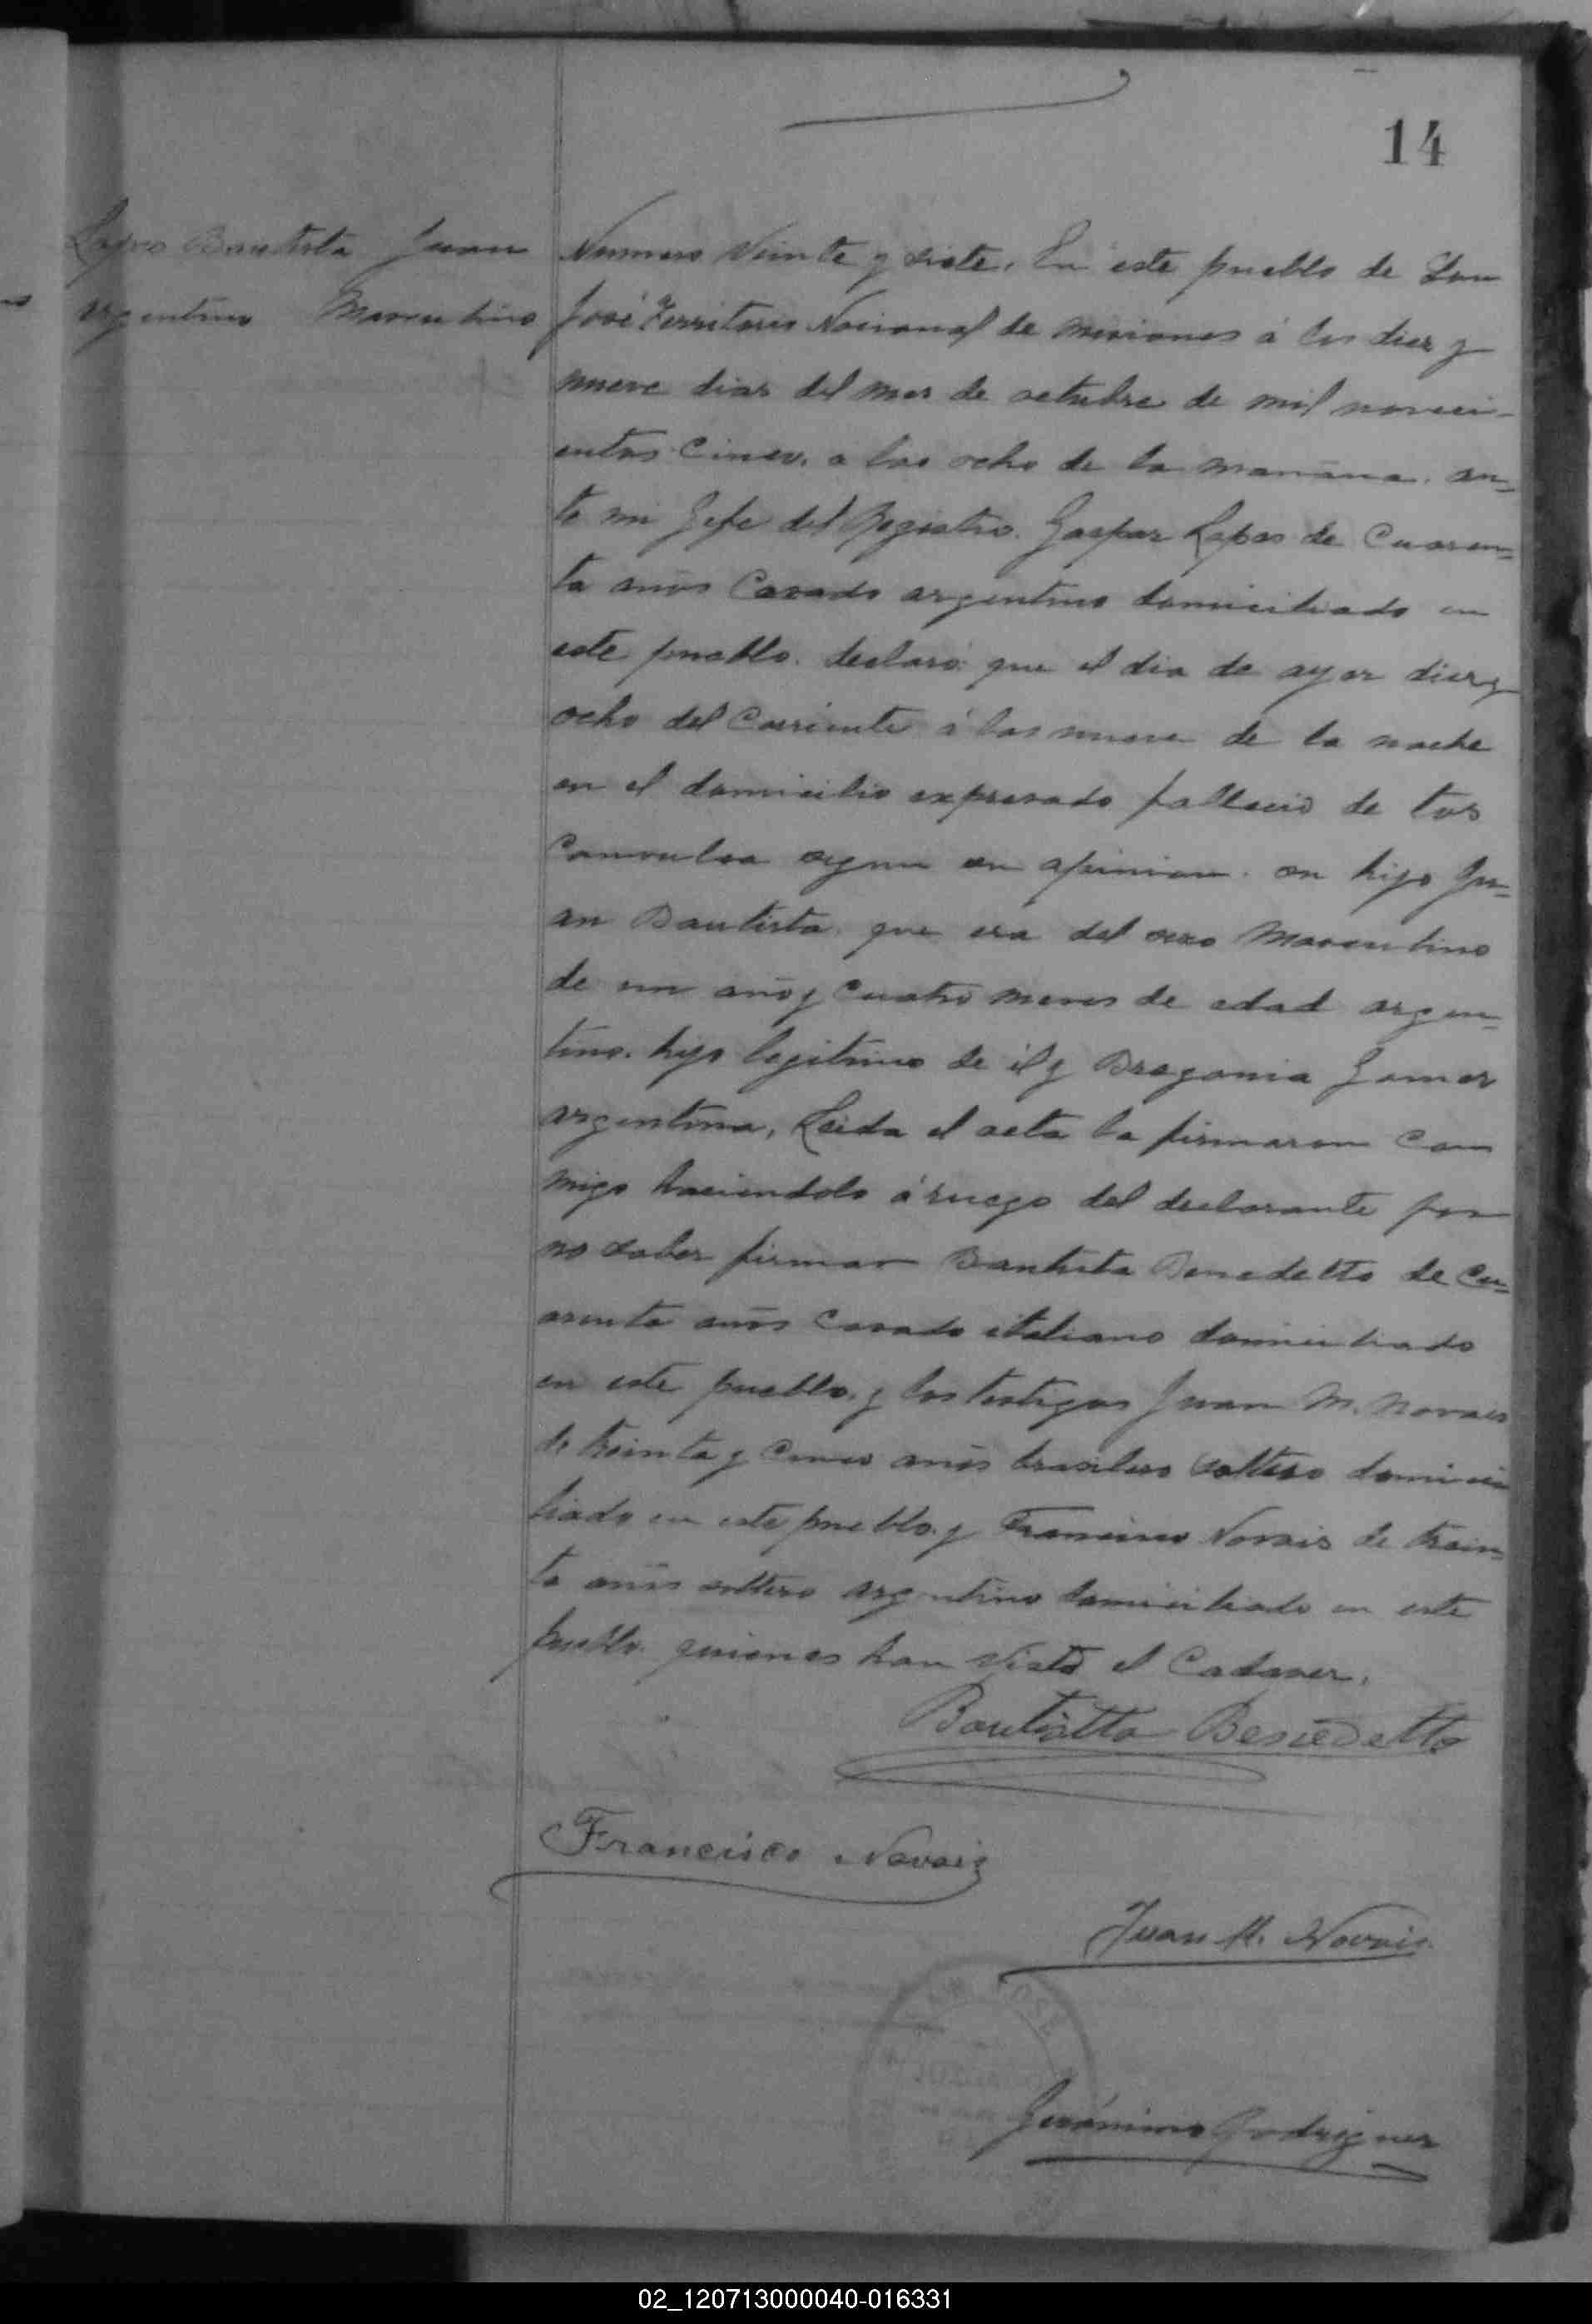 14
Lopes Bautista Juan
argentino Masculino
Numero Veinte y siete. En este pueblo de San
José Territorio Nacional de Misiones á los diez y
nueve dias del mes de octubre de mil noveci-
entos cinco, a las ocho de la mañana, an=
te mi Jefe del Registro. Gaspar Lopes de Cuaren=
ta años Casado argentino domiciliado en
este pueblo. declaró: que el dia de ayer diez y
ocho del Corriente á las nueve de la noche
en el domicilio expresado fallecio de tos
Convulsa segun su opinion. su hijo Ju=
an Bautista. que era del sexo Masculino
de un año y Cuatro meses de edad argen=
tino. hijo legitimo de él y Gomes
argentina, Leida el acta la firmaron con
migo haciendolo á ruego del declarante por
no saber firmar Bautista Benedetto de Cu=
arenta años Casado italiano domiciliado
en este pueblo. y los testigos Juan M. Novais
de treinta y Cinco años brasilero soltero domici
liado en este pueblo. y Francisco Novais de trein
ta años soltero argentino domiciliado en este
pueblo. quienes han visto el Cadaver.
Bautistta Benedetto
Francisco Novais
Juan M. Novais.
SAN JOSE
JUZGADO
Gerónimo Rodriguez
02_120713000040-016331